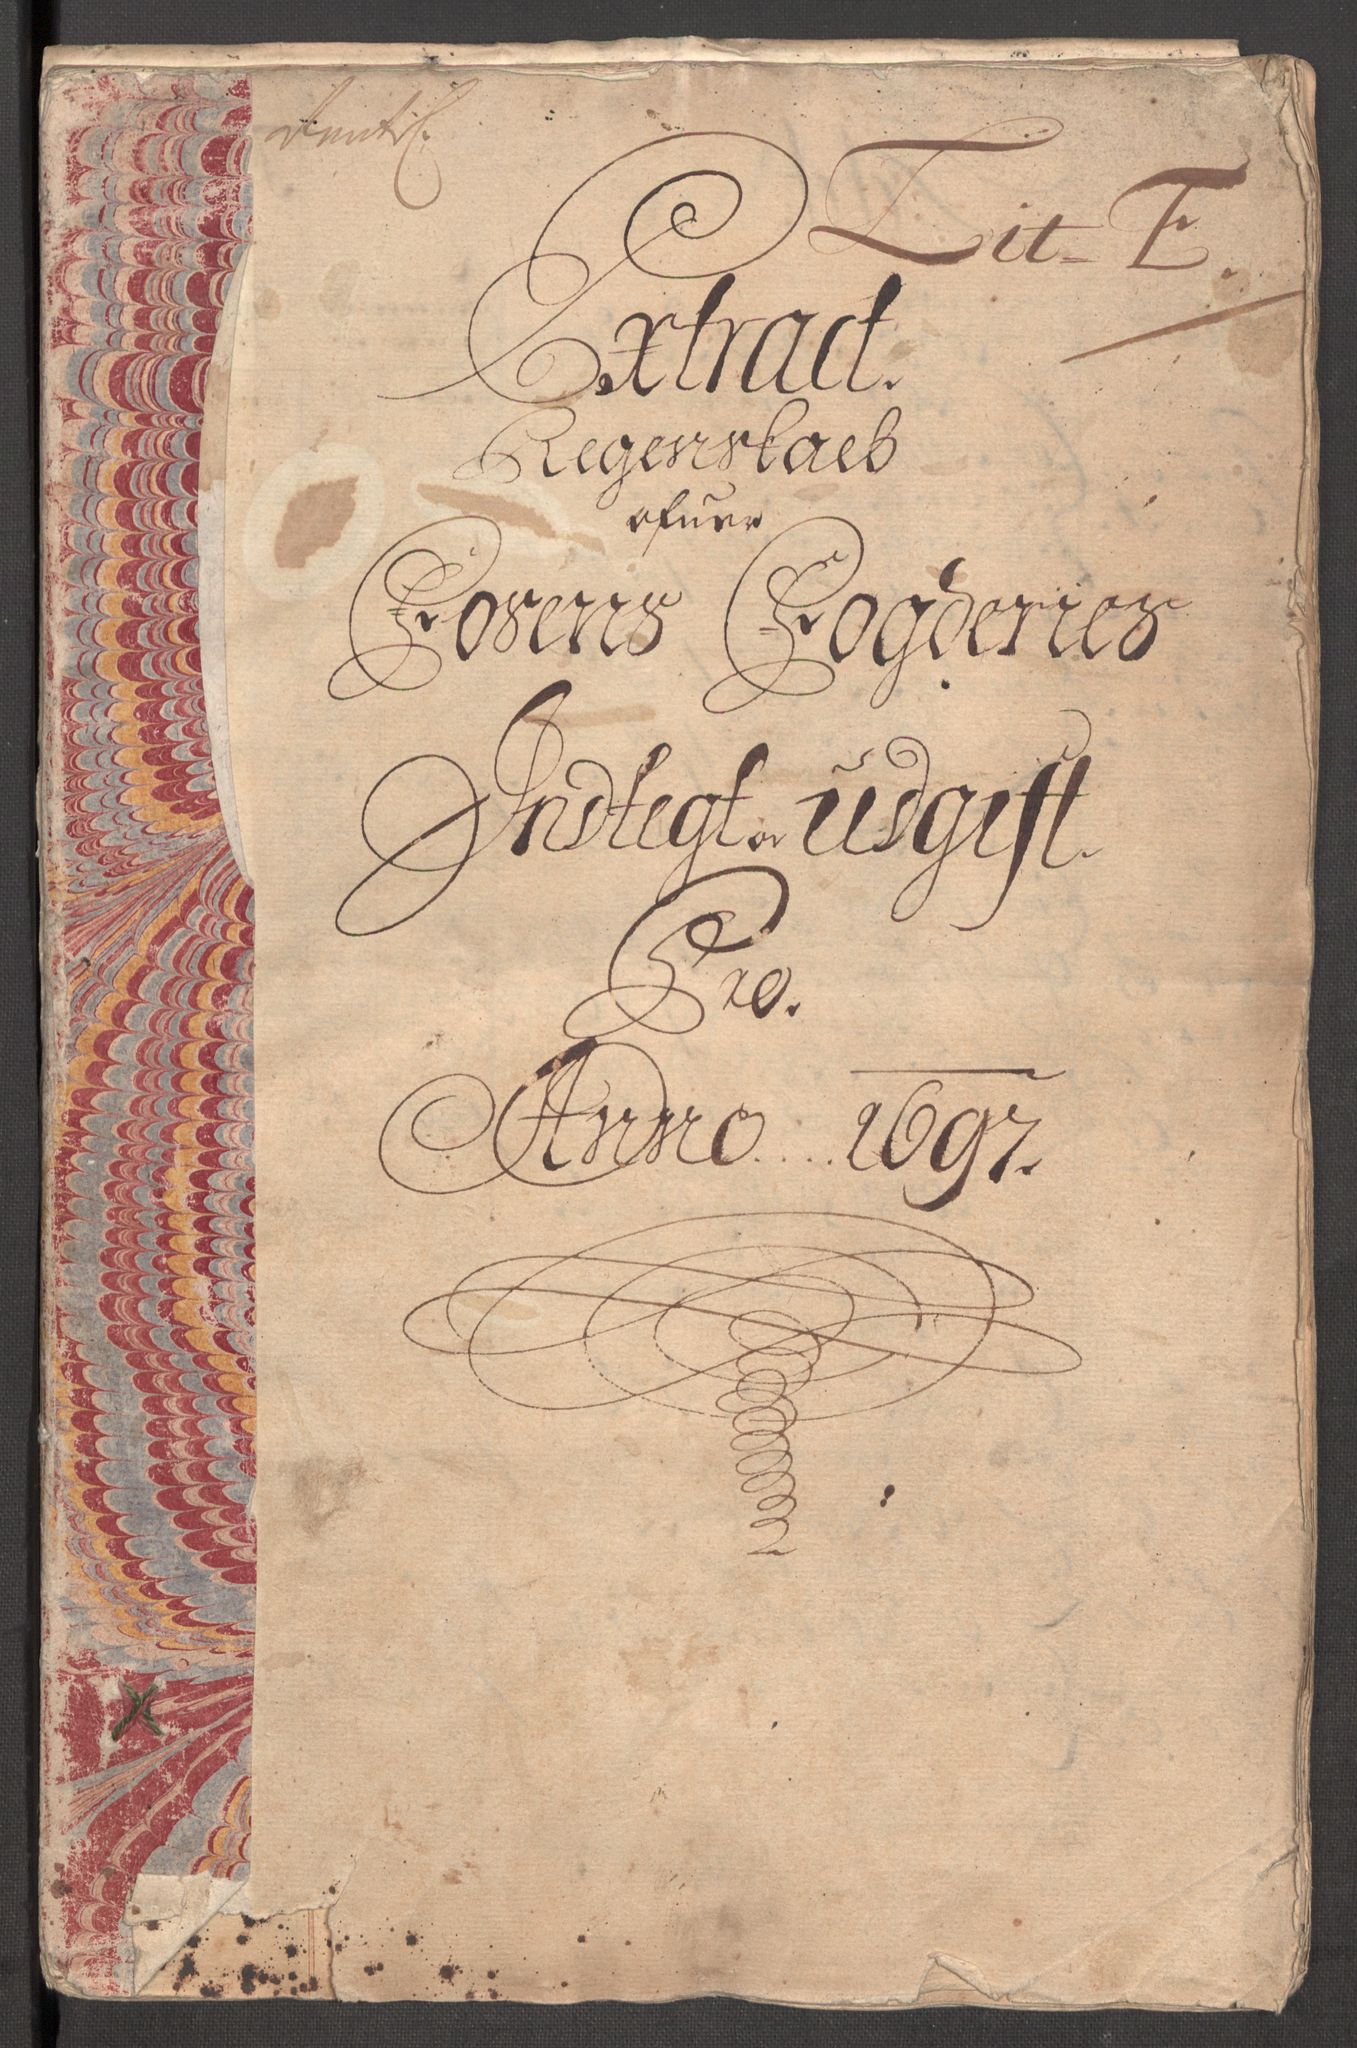 Lit= E.
Extract.
Regenskaeb
ofuer
Fosens Fogderies
Indtegt og Udgift.
Pro.
Anno....1697.